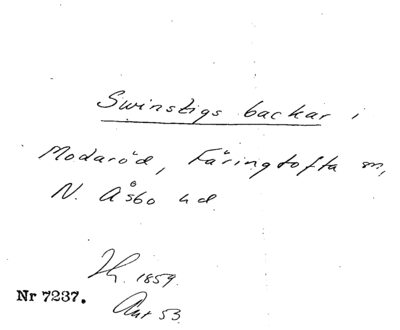 Swinstigs backar i
Modaröd, Färingtofta sn,
N. Åsbo hd
Ih. 1859.
Nr 7237.
Ant 53